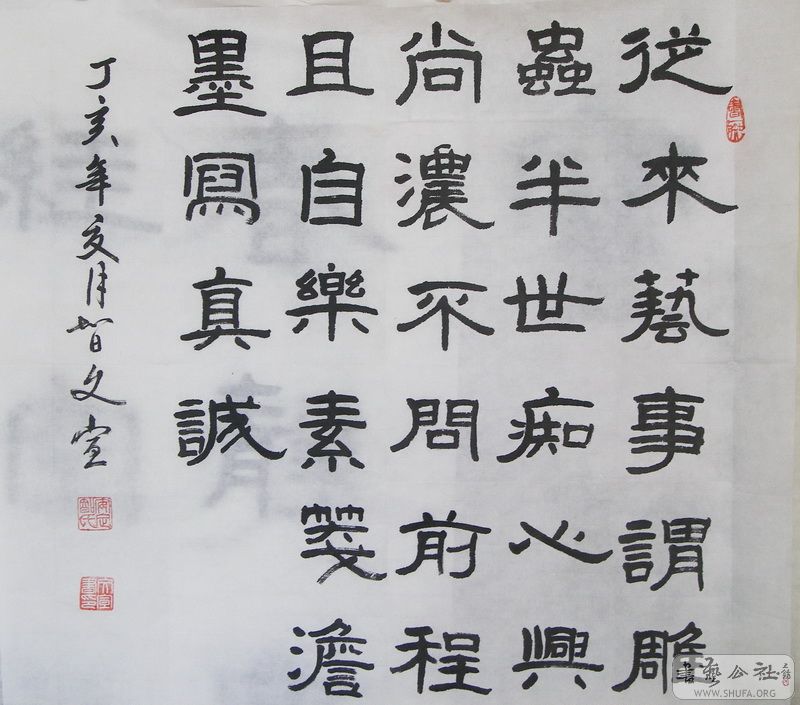 從來藝事謂雕
蟲半世痴心興
尚濃不問前程
且自樂素箋澹
墨寫真誠
丁亥年亥月智文堂
書藝公社
WWW.SHUFA.ORG